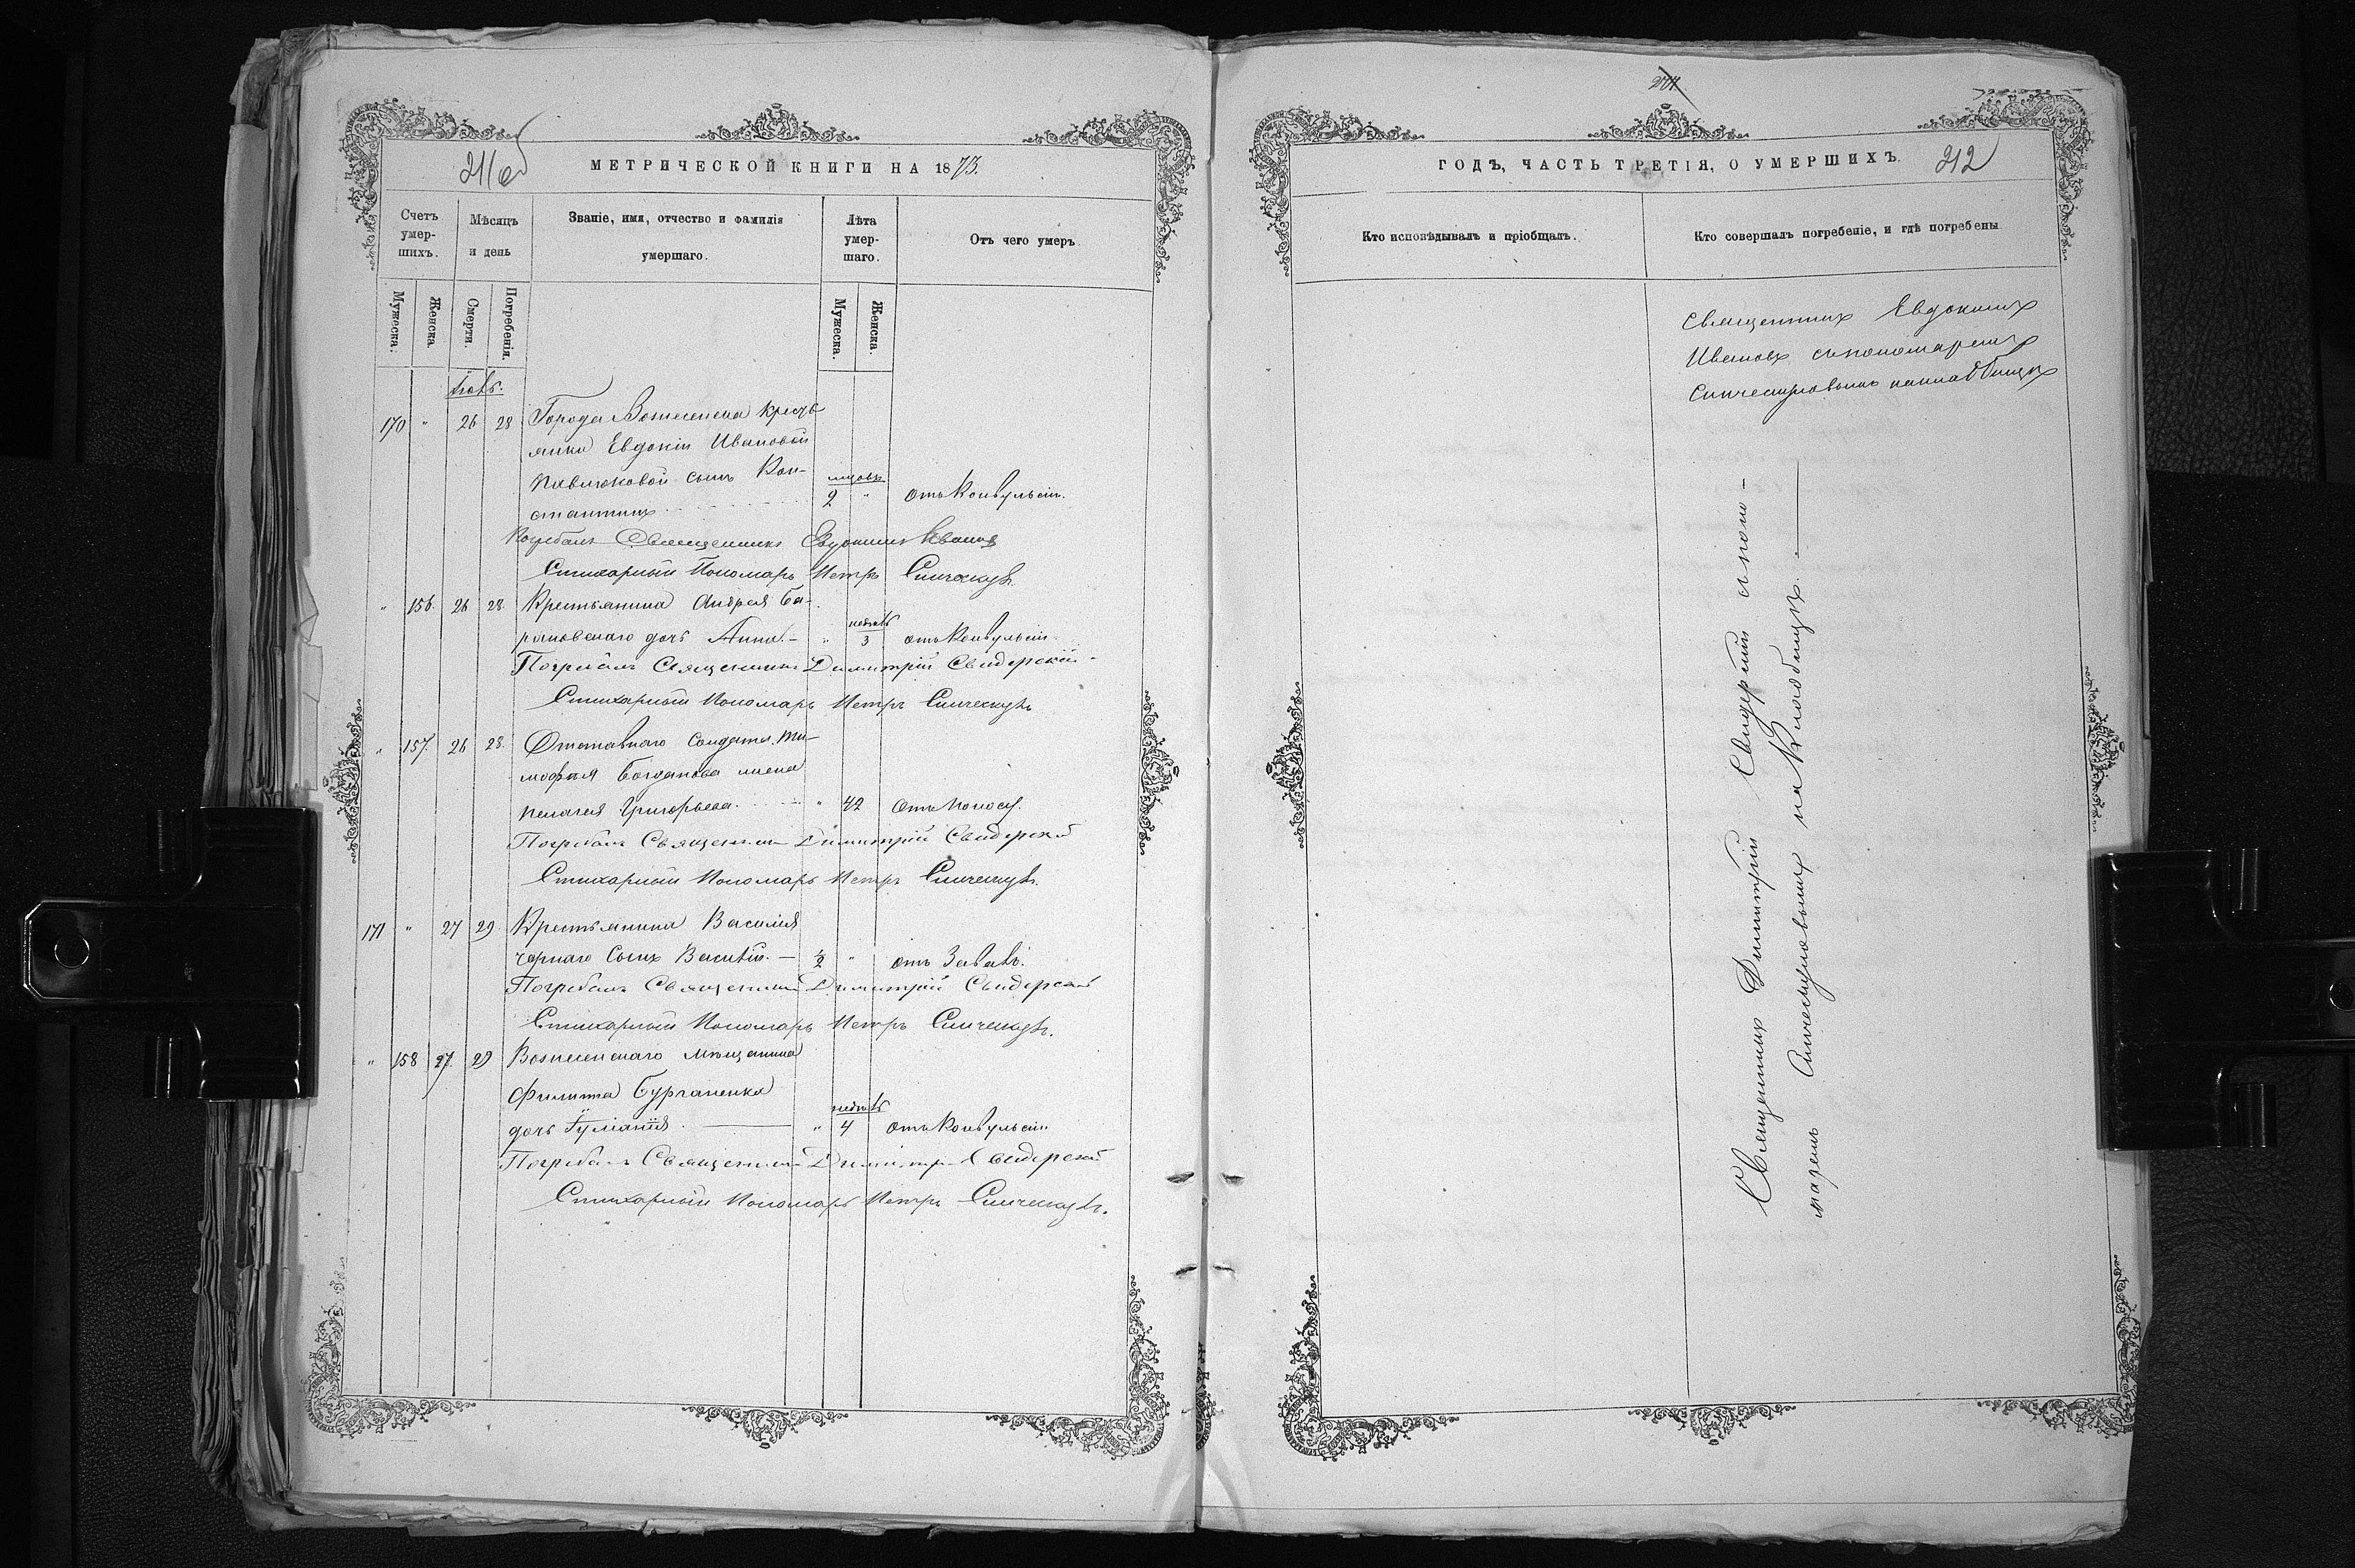 211об
МЕТРИЧЕСКОЙ КНИГИ НА 1873.
Счетъ умер-шихъ.
Мѣсяцъ и день
Званіе, имя, отчество и фамилія умершаго.
Лѣта умер-шаго.
Отъ чего умеръ
Мужеска.
Женска.
Смерти.
Погребенія.
Мужеска.
Женска.
170 " 26 28 Города Вознесенска крестъ-
янки Евдокіи Ивановой
Павлюковой сынъ Кон-
стантинъ 2 " отъ Конвульсіи.
Погребалъ Священникъ Евдокимъ Ивановъ
Стихарный Пономарь Петръ
" 156 26 28. Крестьянина Андрея Ба-
рановскаго дочь Анна. - " 3 отъ Конвульсіи
Погребалъ Священникъ Димитрій Свидерскій
Стихарный Пономарь Петръ
" 157. 26 28. Отставнаго Солдата Ти-
мофея Богданова жена
Пелагея Григорьева. " 42 отъ Поносу.
Погребалъ Священникъ Димитрій Свидерскій
Стихарный Пономарь Петръ
171 " 27 29 Крестьянина Василія
Чернаго Сынъ Василій. - ½ " отъ
Погребалъ Священникъ Димитрій Свидерскій
Стихарный Пономарь Петръ
" 158 27. 29 Вознесенскаго мѣщанина
Филиппа Бурганенка
дочь Іуліанія. " 4 отъ Конвульсіи
Погребалъ Священникъ Димитрій Свидерскій
Стихарный Пономарь Петръ
ГОДЪ, ЧАСТЬ ТРЕТІЯ, О УМЕРШИХЪ.
212
Кто исповѣдывалъ и пріобщалъ.
Кто совершалъ погребеніе, и гдѣ погребены
Священникъ Евдокимъ
Ивановъ съ пономаремъ
на кладбищѣ
Священникъ Димитрій Свидерскій съ поно-
маремъ на Кладбищѣ.